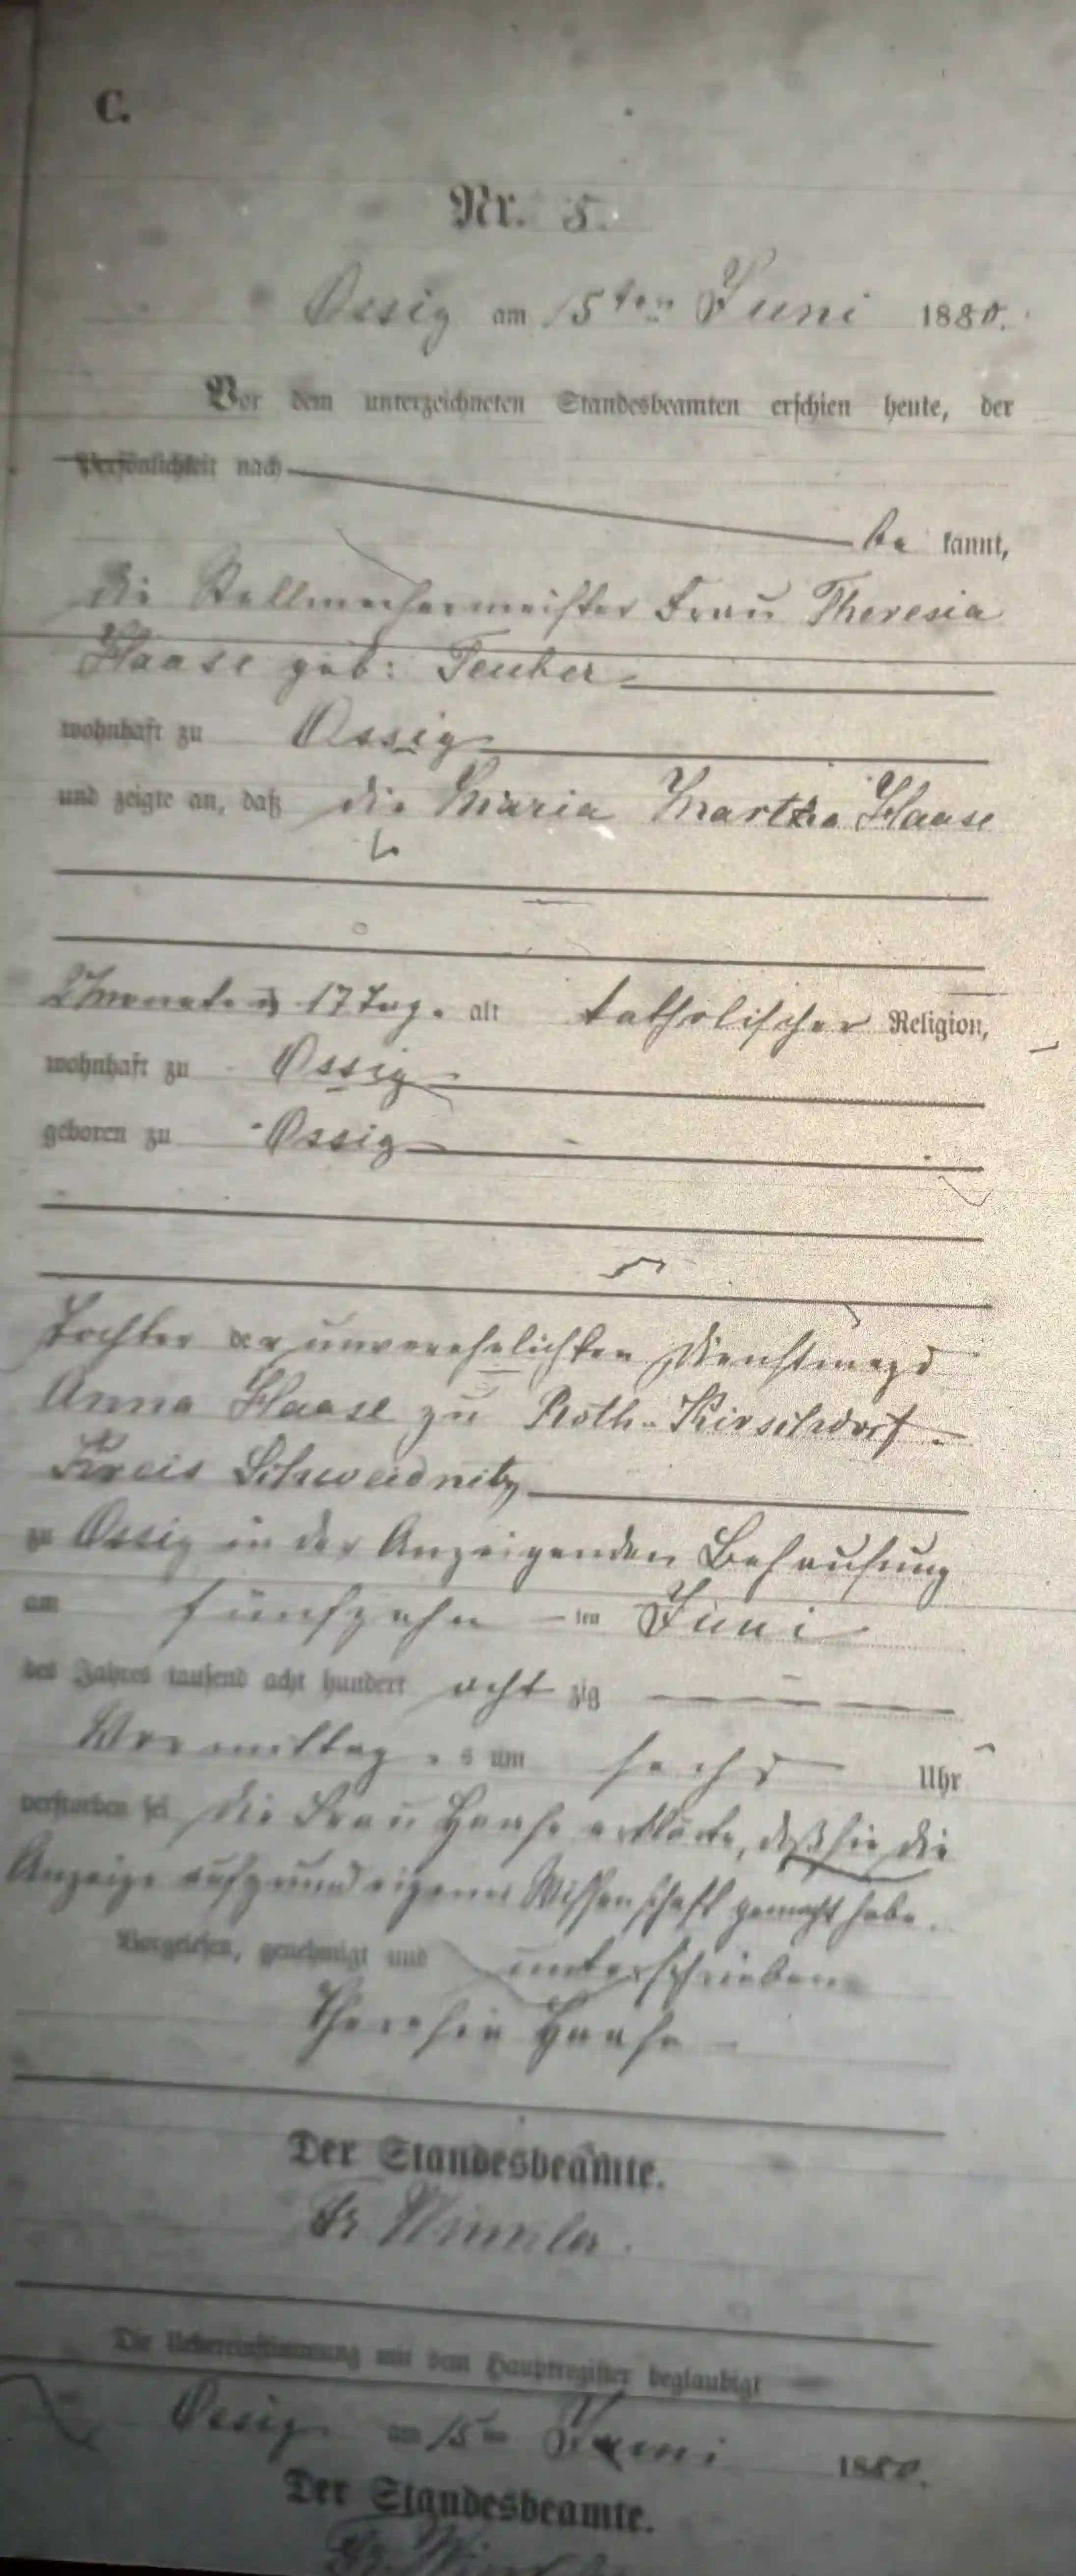 C.
Nr. 5.
Ossig am 15ten Juni 1880.
Vor dem unterzeichneten Standesbeamten erschien heute, der
Persönlichkeit nach
be kannt,
die Stellmachermeister Frau Theresia
Haase geb: Teuber
wohnhaft zu Ossig
und zeigte an, daß die Maria Martha Haase
2 Monate u 17 Tage alt katholischer Religion,
wohnhaft zu Ossig
geboren zu Ossig
Tochter der unverehelichten Dienstmagd
Anna Haase zu Roth-Kirschdorf
Kreis Schweidnitz
zu Ossig in der Anzeigenden Behausung
am fünfzehn ten Juni
des Jahres tausend acht hundert acht zig
Vormittags um sechs Uhr
verstorben sei Die Frau Haase erklärte, daß sie die
Anzeige aufgrund eigener Wissenschaft gemacht habe.
Vorgelesen, genehmigt und unterschrieben
Theresia Haase
Der Standesbeamte.
Fr.
Die Uebereinstimmung mit dem Hauptregister beglaubigt
Ossig am 15ten Juni 1880.
Der Standesbeamte.
Fr.